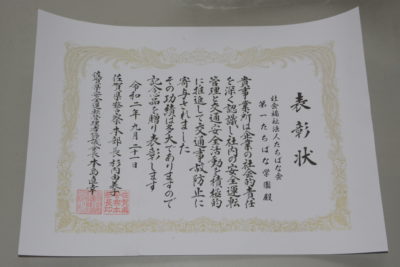 表彰状
社会福祉法人たちばな会
第一たちばな学園 殿
貴事業所は企業の社会的責任
を深く認識し社内の安全運転
管理と交通安全活動を積極的
に推進して交通事故防止に
寄与されました
その功績は多大でありますので
記念品を贈り表彰します
令和二年九月二十一日
佐賀県警察本部長 杉内由美子
佐賀県安全運転管理者等協議会長